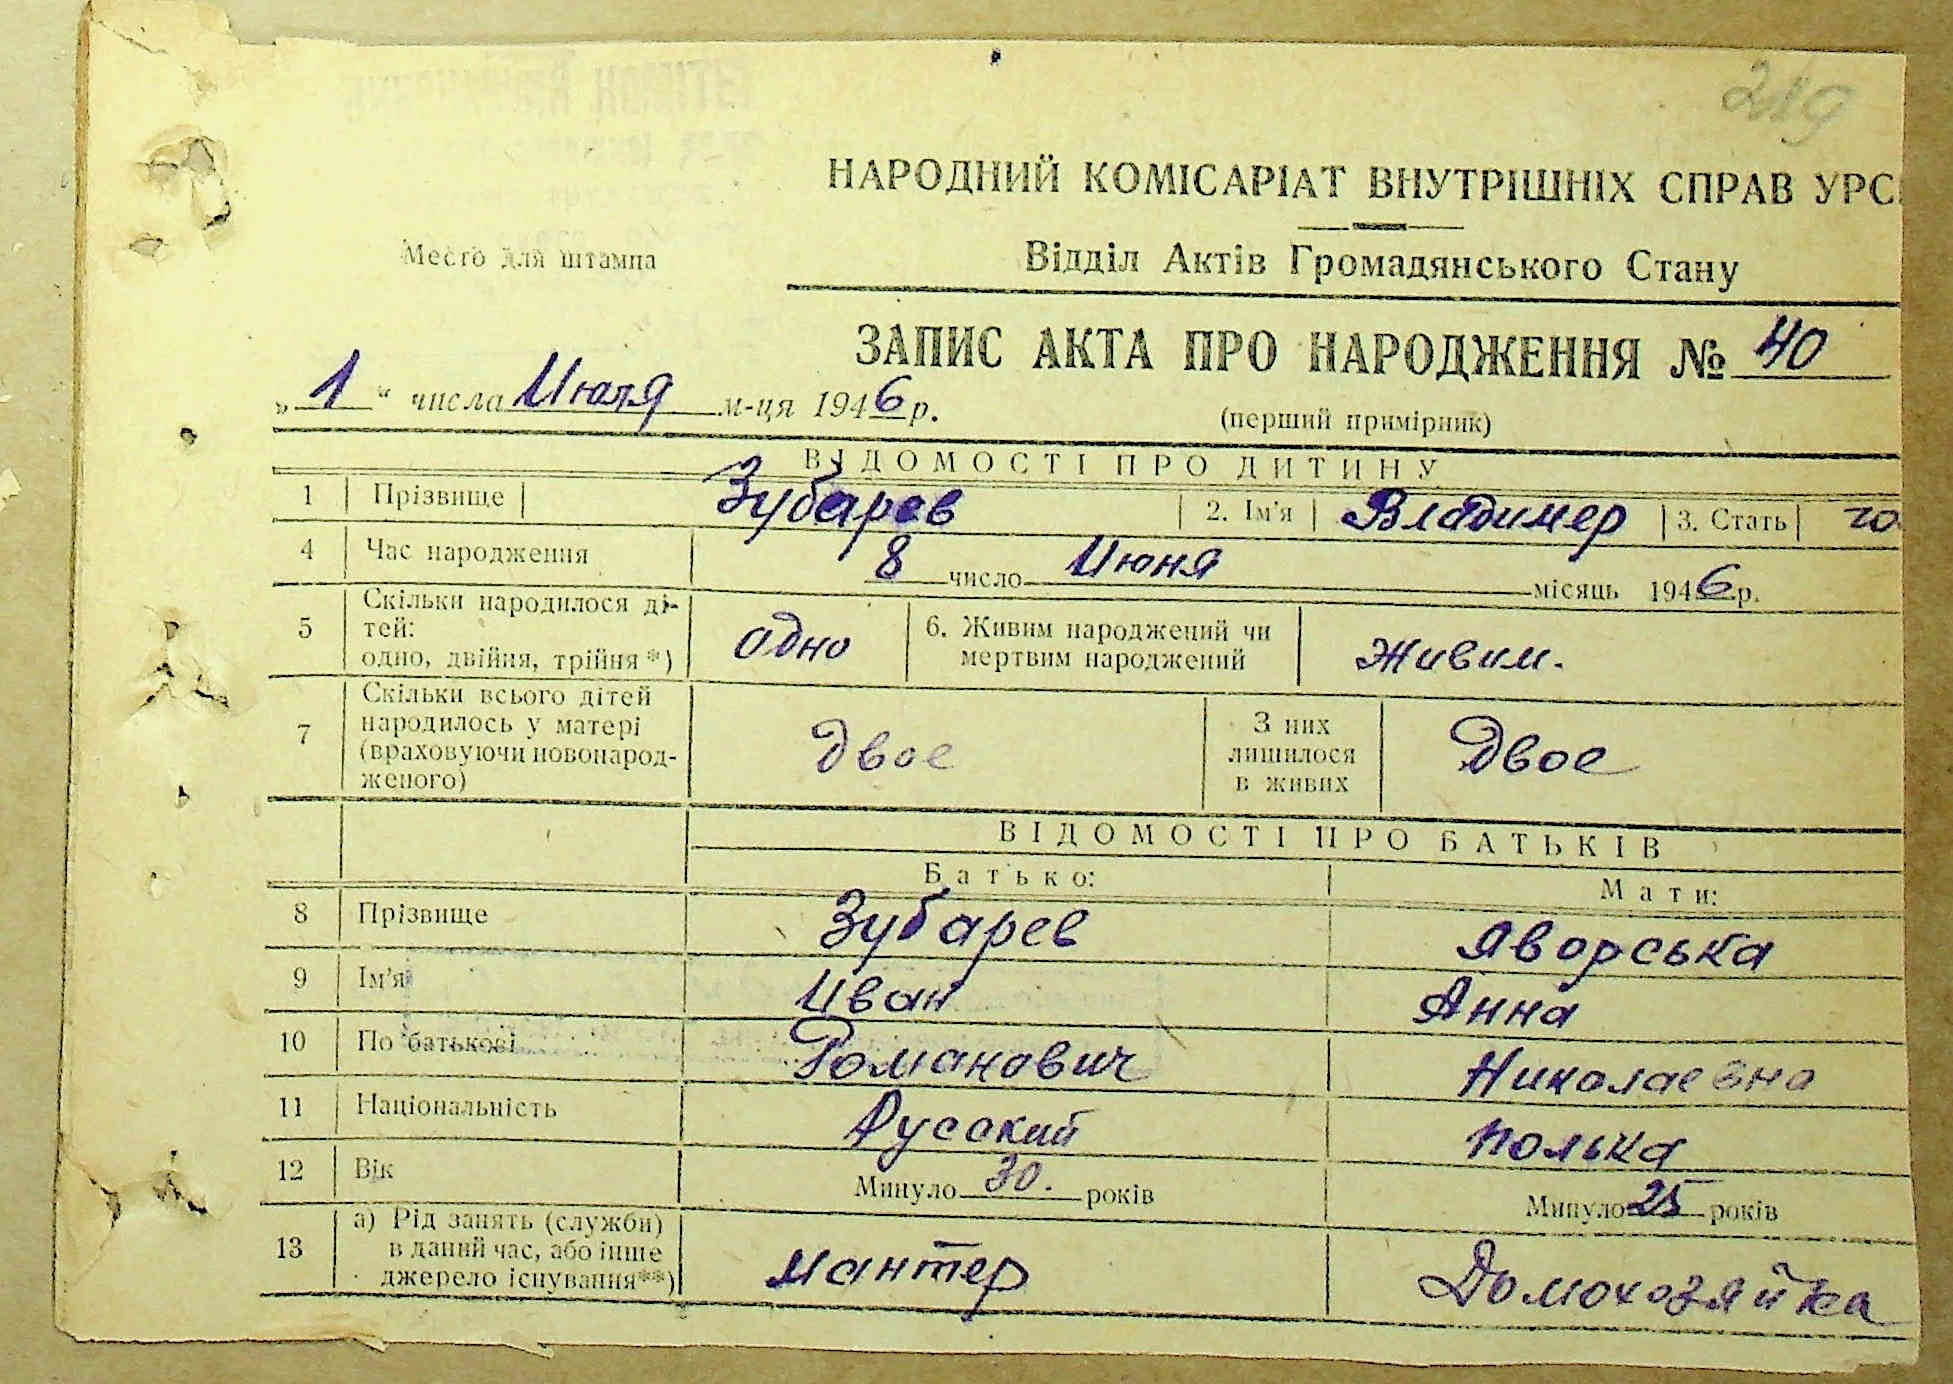 219
НАРОДНИЙ КОМІСАРІАТ ВНУТРІШНІХ СПРАВ УРС
Место для штампа
Відділ Актів Громадянського Стану
ЗАПИС АКТА ПРО НАРОДЖЕННЯ № 40
„1“ числа Июля м-ця 1946 р.
(перший примірник)
ВІДОМОСТІ ПРО ДИТИНУ
1 Прізвище Зубарев 2. Ім'я Владимер 3. Стать
4 Час народження 8 число Июня місяць 1946 р.
5 Скільки народилося ді-
тей:
одно, двійня, трійня*) одно 6. Живим народжений чи
мертвим народжений живим.
7 Скільки всього дітей
народилось у матері
(враховуючи новонарод-
женого) двое З них
лишилося
в живих Двое
ВІДОМОСТІ ПРО БАТЬКІВ
Батько: Мати:
8 Прізвище Зубарев Яворська
9 Ім'я Иван Анна
10 По батькові Романович Николаевна
11 Національність Русский полька
12 Вік Минуло 30. років Минуло 25 років
13 а) Рід занять (служби)
в даний час, або інше
джерело існування**) мантер Домохозяйка